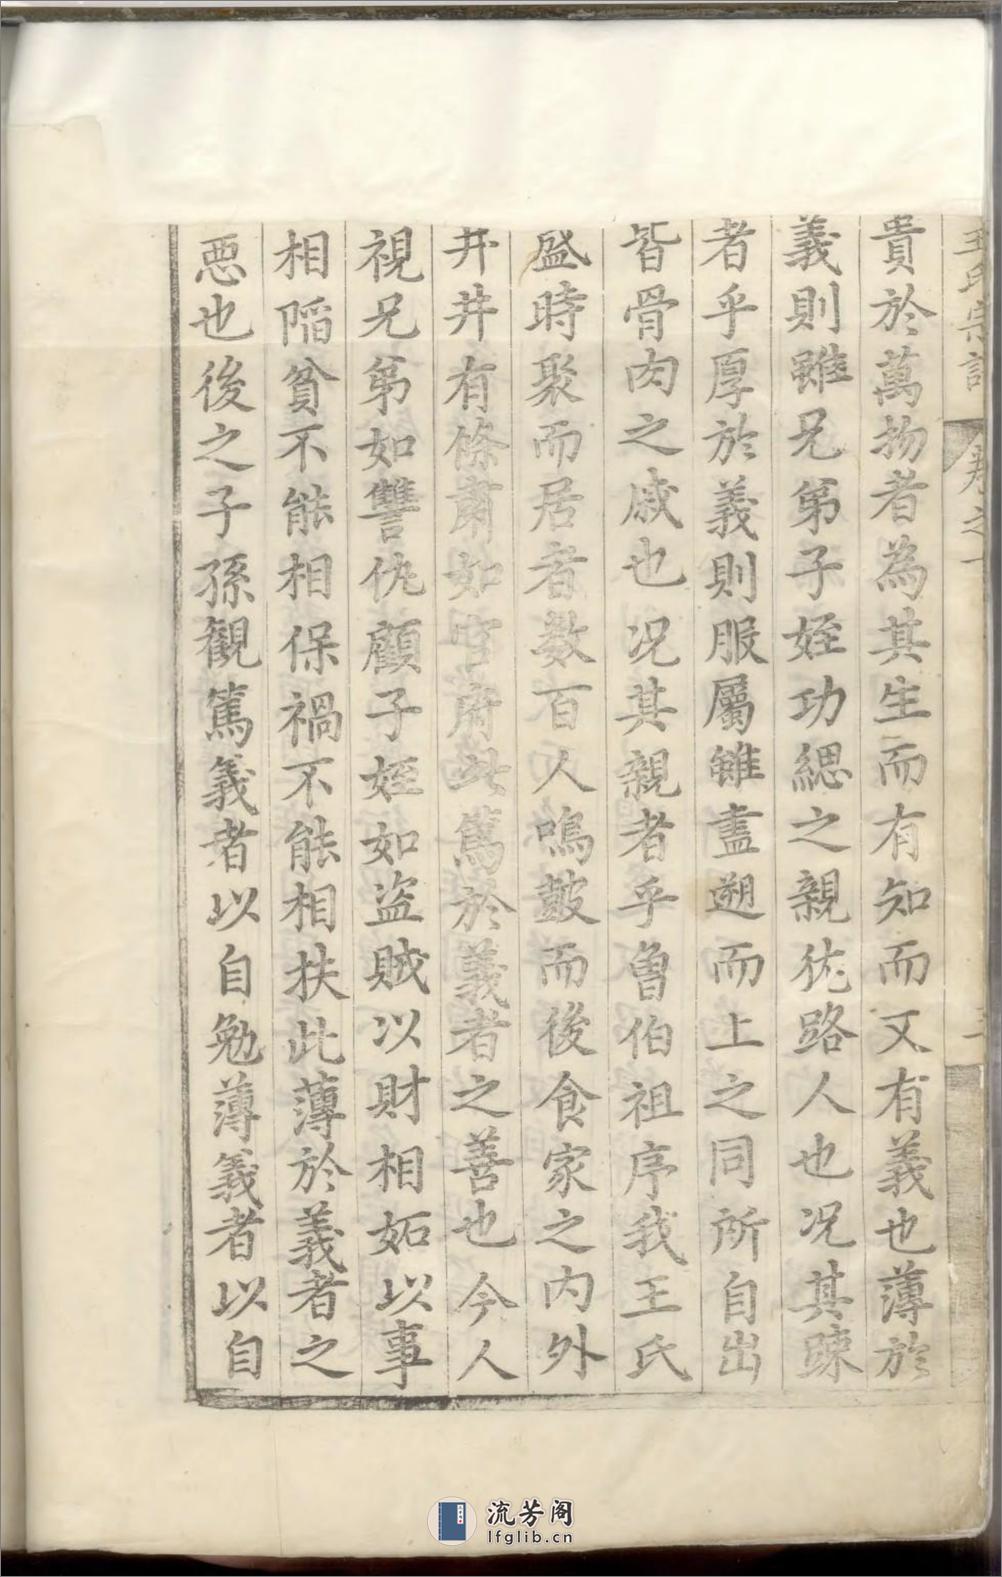 王氏宗譜 序之一 三
貴於萬物者為其生而有知而又有義也薄於
義則雖兄弟子姪功緦之親猶路人也况其踈
者乎厚於義則服屬雖盡遡而上之同所自出
皆骨肉之戚也况其親者乎魯伯祖序我王氏
盛時聚而居者数百人鳴皷而後食家之内外
井井有條肅如官府此篤於義者之善也今人
視兄弟如讐仇顧子姪如盗賊以財相妬以事
相陷貧不能相保禍不能相扶此薄於義者之
悪也後之子孫觀篤義者以自勉薄義者以自
流芳阁
lfglib.cn